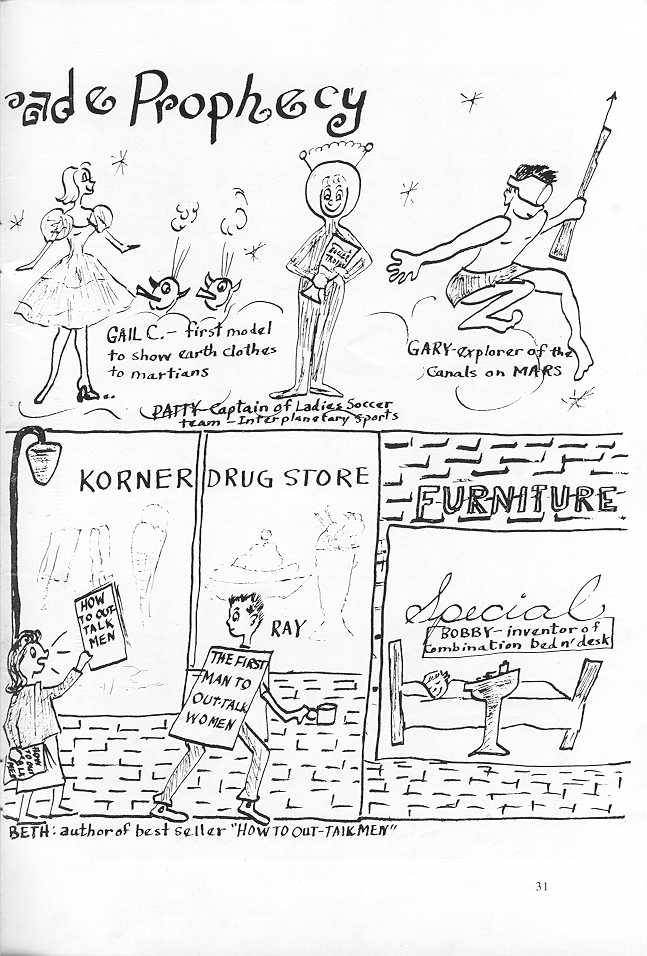 ade Prophecy
SOCCER
TROPHY
GAIL C. - first model
to show earth clothes
to martians
PATTY - Captain of Ladies Soccer
team - Interplanetary Sports
GARY - explorer of the
Canals on MARS
KORNER DRUG STORE
FURNITURE
Special
BOBBY - inventor of
Combination bed n' desk
HOW
TO OUT-
TALK
MEN
RAY
THE FIRST
MAN TO
OUT-TALK
WOMEN
HOW
TO OUT
TALK
MEN
BETH: author of best seller "HOW TO OUT-TALK MEN"
31